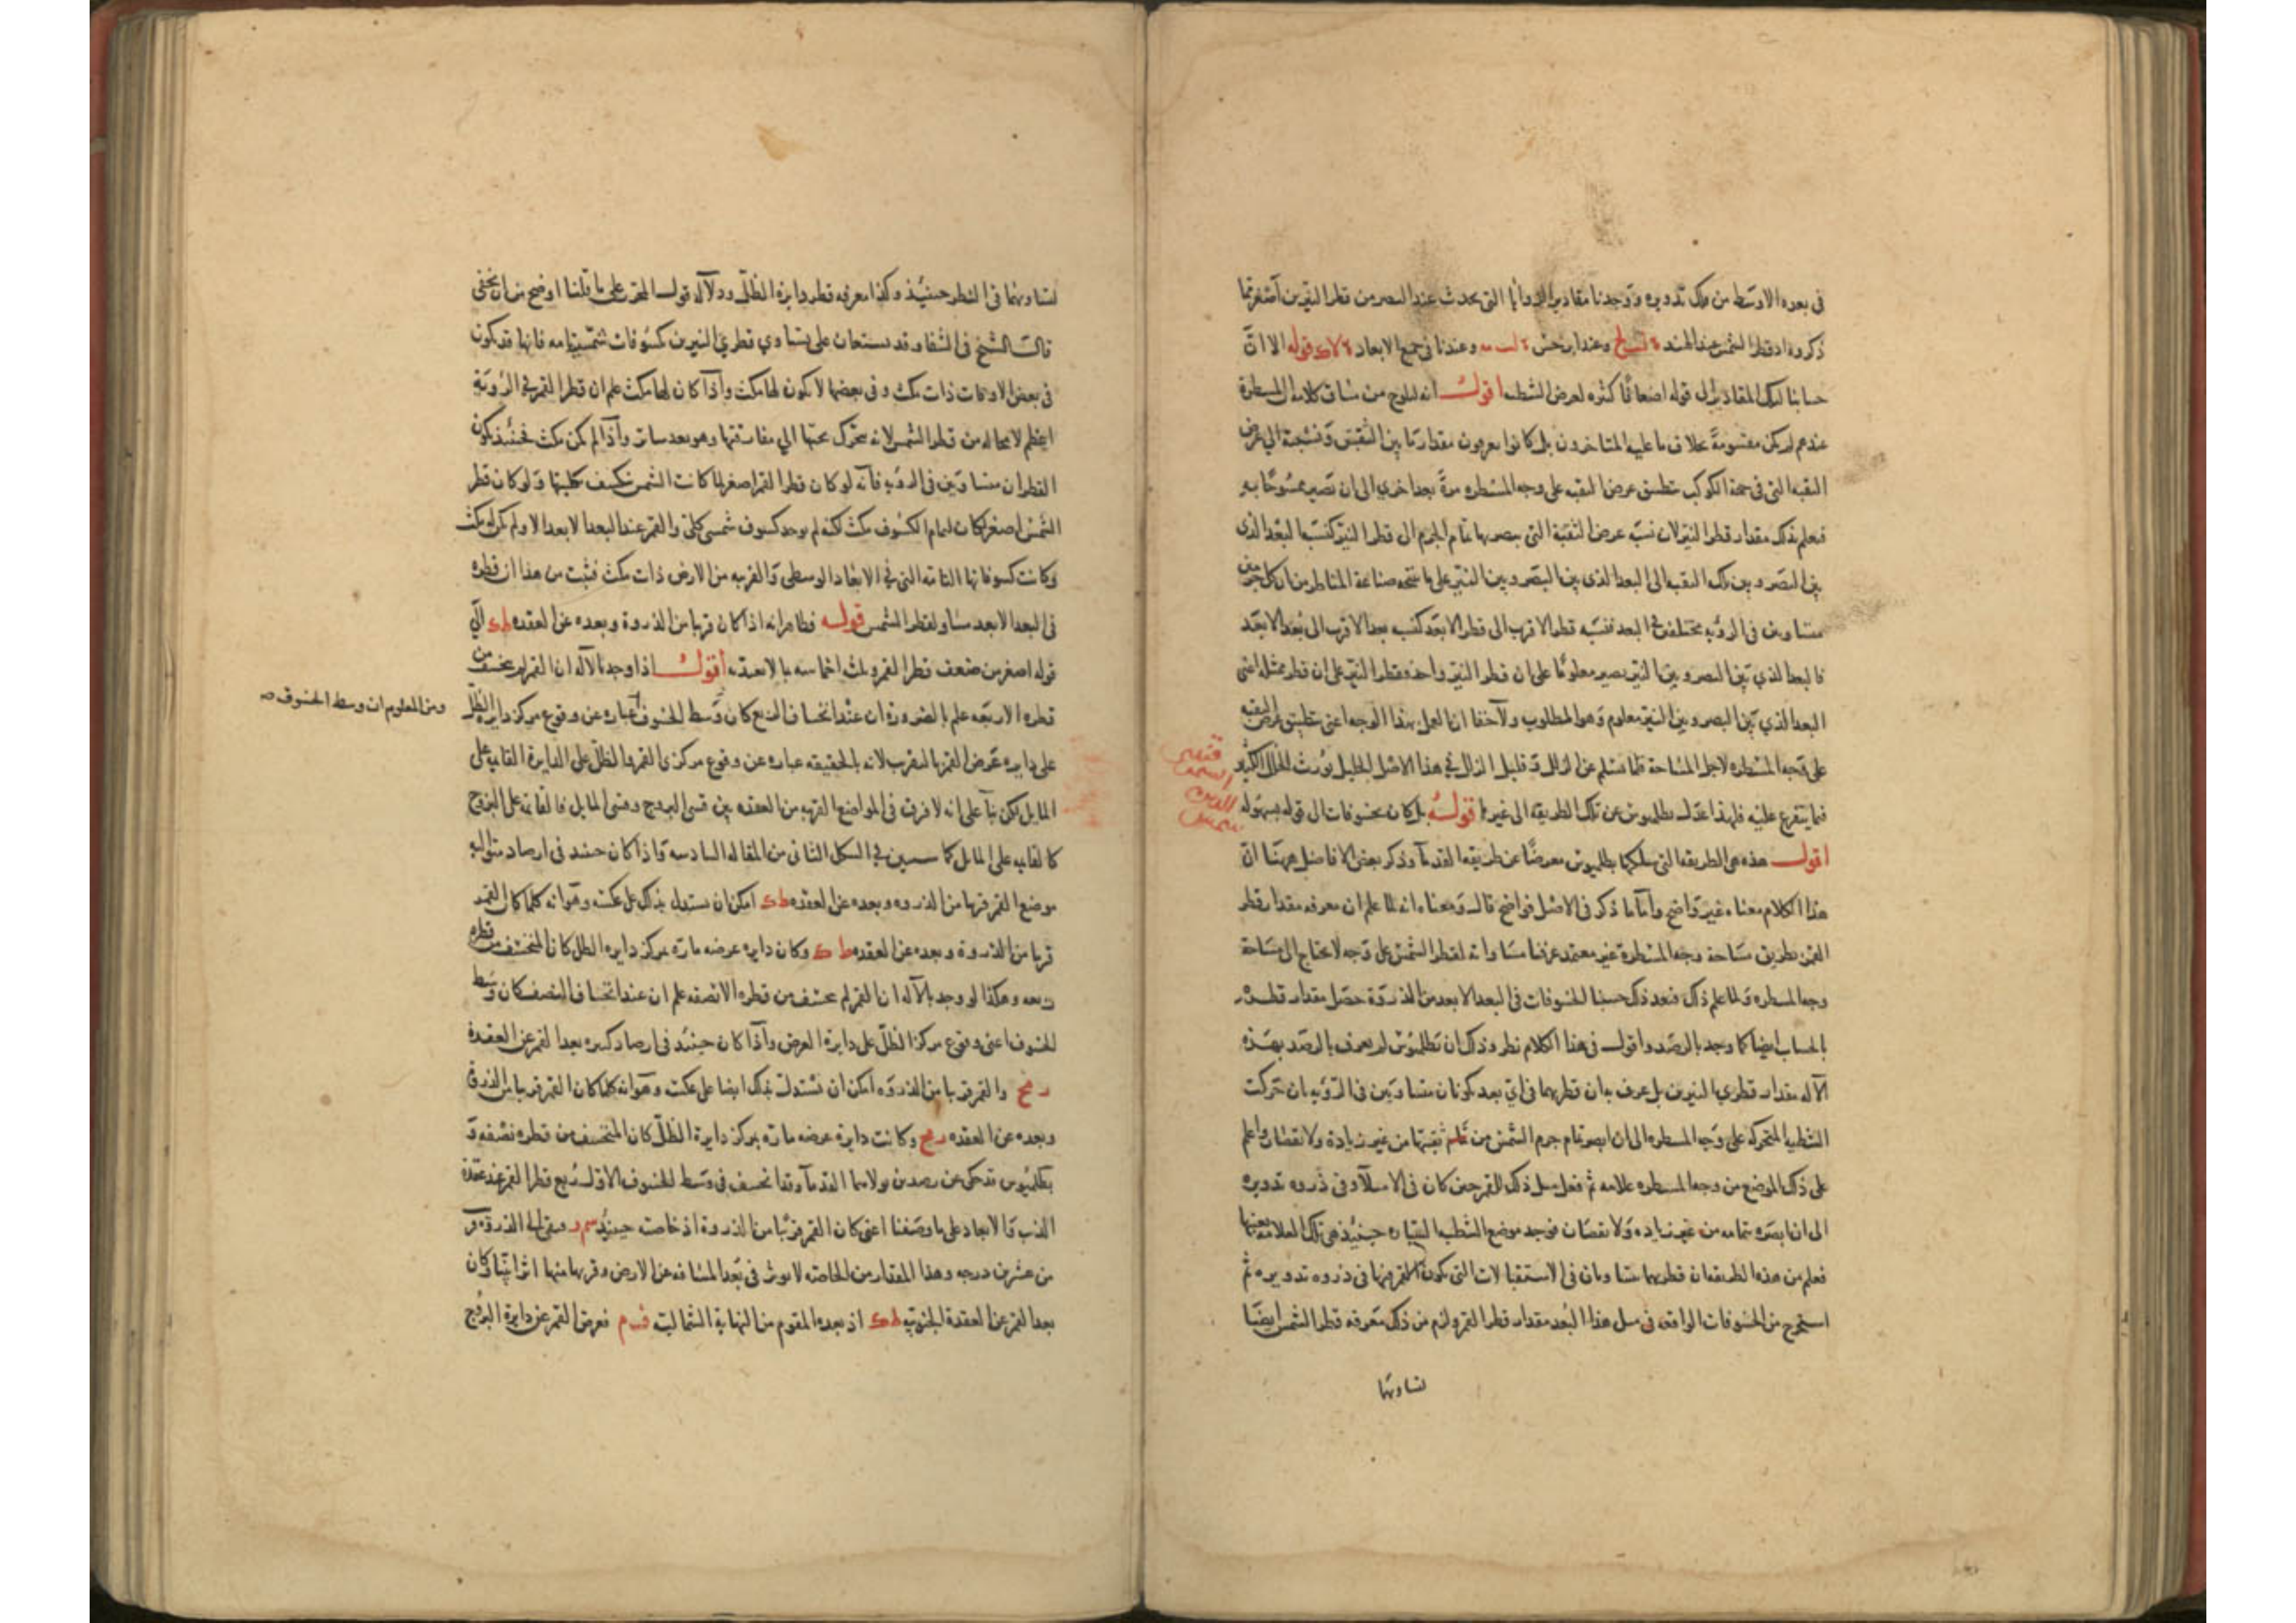 في بعده الاوسط من فلك تدويره ووجدنا مقادير الزوايا التي يحدث عند البصر من قطر النيرين اصغر مما
ذكروه اذ قطر الشمس عند الهند وعند ابرخس وعندنا في جميع الابعاد قوله الا ان
حسابنا لتلك المقادير الى قوله اضعافا كثيره لعرض الشظيه اقول انه يلوح من سياق كلامه ان المسطرة
عندهم لم يكن مقسومة بخلاف ما عليه المتاخرون بل كانوا يعرفون مقدار ما بين الثقبتين ونسبته الى عرض
الثقبه التي في جهة الكوكب بتطبيق عرض الثقبه على وجه المسطره مرة بعد اخرى الى ان تصير ممسوحا به
فيعلم بذلك مقدار قطر النير لان نسبة عرض الثقبة التي يبصر بها تمام الجرم الى قطر النير كنسبة البعد الذي
بين البصر وبين تلك الثقبه الى البعد الذي بين البصر وبين النير على ما نتجه صناعة المناظر من ان كل جرمين
متساويين في الرؤيه مختلفين في البعد فنسبة قطر الاقرب الى قطر الابعد كنسبة بعد الاقرب الى بعد الابعد
فالبعد الذي بين البصر وبين النير يصير معلوما على ان قطر النير واحد وقطر النير على ان قطره مثله اعني
البعد الذي بين البصر وبين النير معلوم وهو المطلوب ولا خفا ان العمل بهذا الوجه اعني تطبيق عرض الثقبه
على وجه المسطره لاجل المساحة قلما تسلم عن الزلل وقليل الزلل في هذا الاصل الجليل يورث الخلل الكثير
فيما يتفرع عليه فلهذا عدل بطلميوس عن تلك الطريقه الى غيرها قوله بل كان بخسوفات الى قوله بسهوله
اقول هذه هي الطريقه التي سلكها بطلميوس معرضا عن طريقه القدما وذكر بعض الافاضل ههنا ان
هذا الكلام معناه غير واضح واما ما ذكر في الاصل فواضح قال ومعناه انه لما علم ان معرفه مقدار قطر
القمر بطريق مساحة وجه المسطرة غير معتمد عرفنا مساواته لقطر الشمس على وجه لا يحتاج الى مساحة
وجه المسطره ولما علم ذلك فبعد ذلك حسبنا الخسوفات في البعد الابعد من الذروة حصل مقدار قطره
بالحساب ايضا كما وجد بالرصد واقول في هذا الكلام نظر وذلك ان بطلميوس لم يعرف بالرصد بهذه
الآله مقدار قطري النيرين بل عرف به ان قطريهما في اي بعد يكونان متساويين في الرؤيه بان حركت
الشظيه المتحركه على وجه المسطره الى ان ابصر تمام جرم الشمس من ثقبتها من غير زيادة ولا نقصان واعلم
على ذلك الموضع من وجه المسطره علامه ثم فعل مثل ذلك للقمر حين كان في الامتلآ وفي ذروه تدويره
الى ان ابصره بتمامه من غير زياده ولا نقصان فوجد موضع الشظيه حينئذ هي تلك العلامه بعينها
فعلم من هذه الطريقه ان قطريهما متساويان في الاستقبالات التي يكون القمر فيها في ذروه تدويره ثم
استخرج من الخسوفات الواقعه في مثل هذا البعد مقدار قطر القمر ولزم من ذلك معرفه قطر الشمس ايضا
لتساويهما
لتساويهما في النظر حينئذ وكذا معرفه قطر دايرة الظل ودلآله قول المحرر على ما قلنا اوضح من ان يخفى
قال الشيخ في الشفا وقد يستعان على تساوي قطري النيرين بكسوفات شمسيه تامه فانها قد يكون
في بعض الاوقات ذات مكث وفي بعضها لا يكون لها مكث واذا كان لها مكث علم ان قطر القمر في الرؤية
اعظم لا محاله من قطر الشمس لانه يتحرك تحتها الى مفارقتها وهو بعد ساتر واذا لم يكن مكث فحينئذ يكون
القطران متساويين في الرؤيه فانه لو كان قطر القمر اصغر لما كانت الشمس تنكسف بكليتها ولو كان قطر
الشمس اصغر لكان لتمام الكسوف مكث لكنه لم يوجد كسوف شمسي كلي والقمر عند البعد الابعد الا ولم يكن له مكث
وكانت كسوفاتها التامه التي في الابعاد الوسطى والقريبه من الارض ذات مكث فثبت من هذا ان قطره
في البعد الابعد مساو لقطر الشمس قوله فظاهر انه اذا كان قريبا من الذروة وبعده عن العقده ط ك الى
قوله اصغر من ضعف قطر القمر وثلثه اخماسه بما لا يعتد به اقول اذا وجد بالآله ان القمر لم ينخسف من
قطره الا ربعه علم بالضرورة ان عند انخساف الربع كان وسط الخسوف عباره عن وقوع مركز دايره الظل
ومن المعلوم ان وسط الخسوف صح
على دايره عرض القمر بالتقريب لانه بالحقيقه عباره عن وقوع مركزي القمر والظل على الدايرة القايمه على
المايل لكن بنآ على انه لا فرق في المواضع القريبه من العقده بين قسي البروج وقسي المايل فالقايمه على البروج
كالقايمه على المايل كما سيبين في الشكل الثاني من المقاله السادسه واذا كان حينئذ في ارصاد متواليه
موضع القمر قريبا من الذروه وبعده عن العقده ط ك امكن ان يستدل بذلك على عكسه وهو انه كلما كان القمر
قريبا من الذروة وبعده عن العقده ط ك وكان دايره عرضه مارة بمركز دايره الظل كان المنخسف من قطره
ربعه وهكذا لو وجد بالآله ان القمر لم ينخسف من قطره الا نصفه علم ان عند انخساف النصف كان وسط
الخسوف اعني وقوع مركز الظل على دايرة العرض واذا كان حينئذ في ارصاد كثيره بعد القمر عن العقدة
ر مح والقمر قريبا من الذروه امكن ان نستدل بذلك ايضا على عكسه وهو انه كلما كان القمر قريبا من الذروة
وبعده عن العقده ر مح وكانت دايرة عرضه مارة بمركز دايرة الظل كان المنخسف من قطره نصفه و
بطلميوس قد حكى عن رصدين تولاهما القدمآ وقد انخسف في وسط الخسوف الاول ربع قطر القمر عند عقدة
الذنب والابعاد على ما وصفنا اعني كان القمر قريبا من الذروة اذ خاصته حينئذ وبقي له الى الذروة
من عشرين درجه وهذا المقدار من الخاصه لا يوثر في بعد المسافه عن الارض وقربها منها اثرا بينا وكان
بعد القمر عن العقدة الجنوبيه ط ك اذ بعده المقوم من النهاية الشماليه فعرض القمر عن دايرة البروج